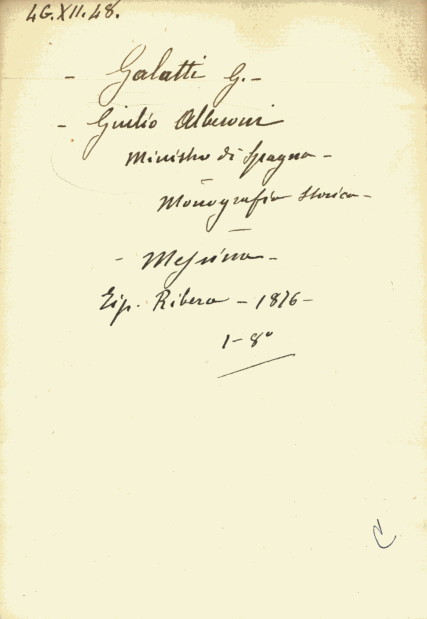 4G.XII.48.
- Galatti G. -
- Giulio Alberoni
Ministro di Spagna -
Monografia storica -
- Messina -
Tip. Ribera - 1876 -
1 - 8°
C